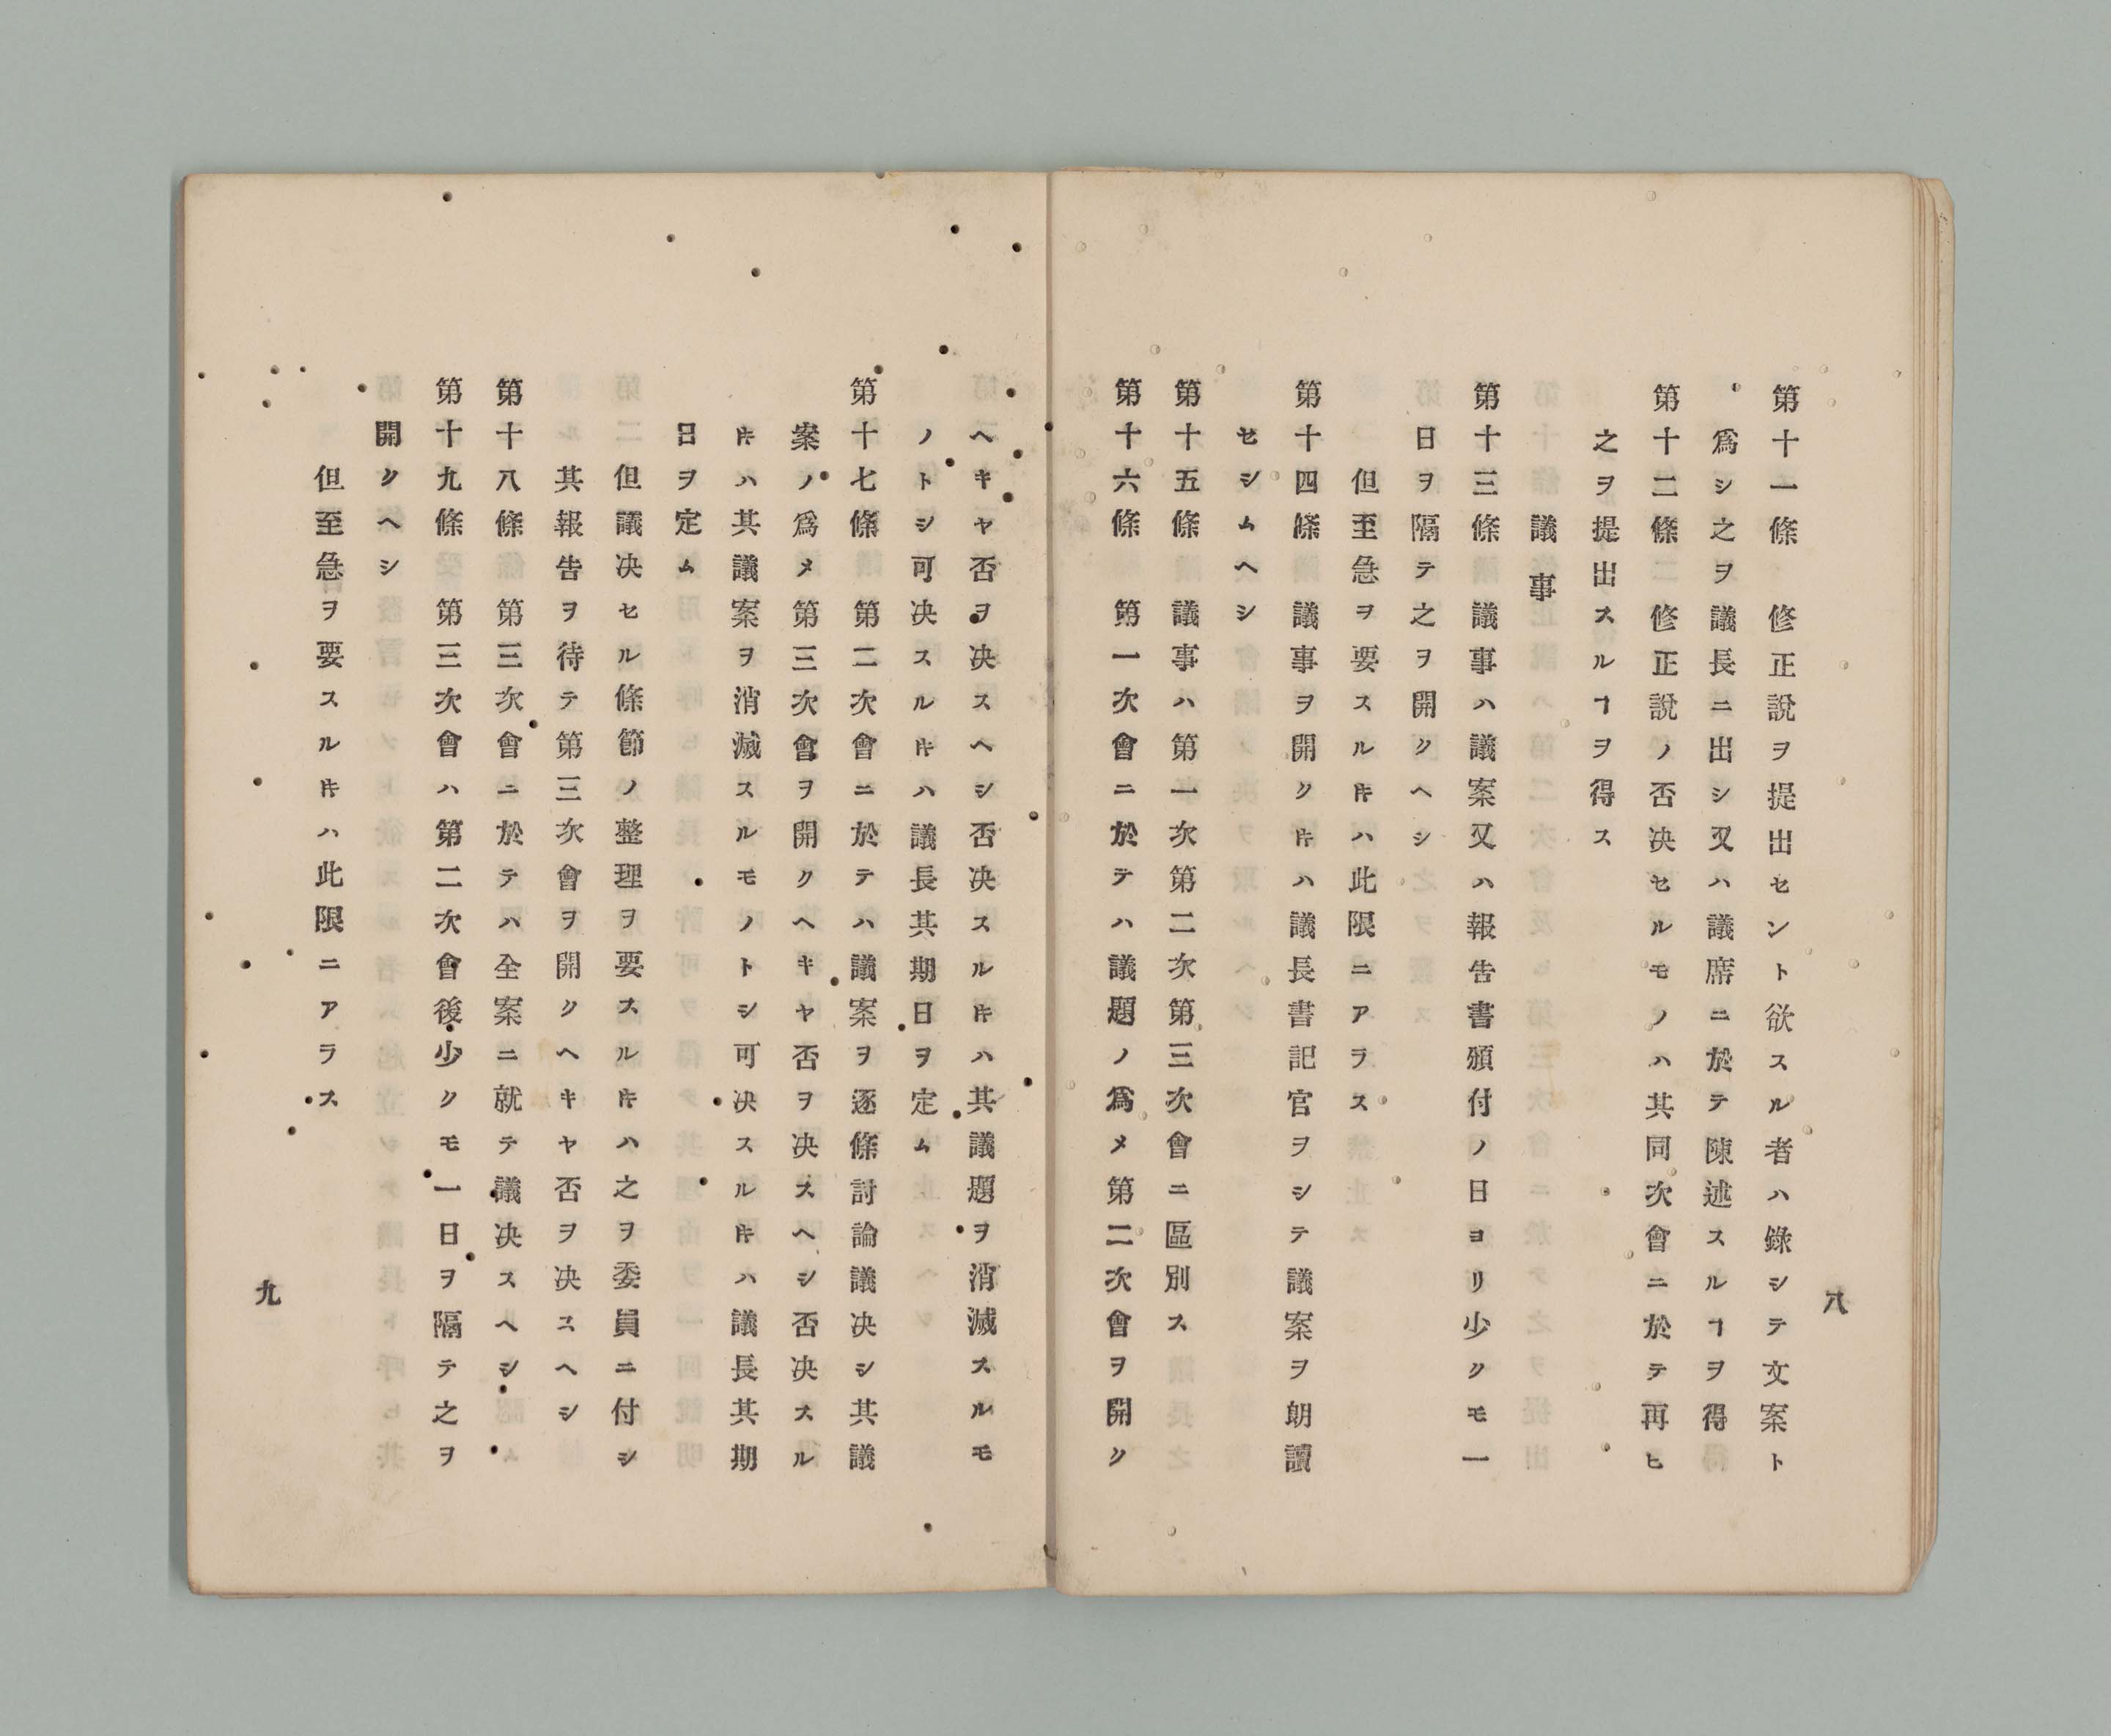 第十一條　修正說ヲ提出セント欲スル者ハ錄シテ文案ト
爲シ之ヲ議長ニ出シ又ハ議席ニ於テ陳述スルヿヲ得
第十二條　修正說ノ否决セルモノハ其同次會ニ於テ再ヒ
之ヲ提出スルヿヲ得ス
議事
第十三條　議事ハ議案又ハ報告書頒付ノ日ヨリ少クモ一
日ヲ隔テ之ヲ開クヘシ
但至急ヲ要スルトキハ此限ニアラス
第十四條　議事ヲ開クトキハ議長書記官ヲシテ議案ヲ朗讀
セシムヘシ
第十五條　議事ハ第一次第二次第三次會ニ區別ス
第十六條　第一次會ニ於テハ議題ノ爲メ第二次會ヲ開ク
八
ヘキヤ否ヲ决スヘシ否决スルトキハ其議題ヲ消滅スルモ
ノトシ可决スルトキハ議長其期日ヲ定ム
第十七條　第二次會ニ於テハ議案ヲ逐條討論議决シ其議
案ノ爲メ第三次會ヲ開クヘキヤ否ヲ决スヘシ否决スル
トキハ其議案ヲ消滅スルモノトシ可决スルトキハ議長其期
日ヲ定ム
但議决セル條節ノ整理ヲ要スルトキハ之ヲ委員ニ付シ
其報告ヲ待テ第三次會ヲ開クヘキヤ否ヲ决スヘシ
第十八條　第三次會ニ於テハ全案ニ就テ議决スヘシ
第十九條　第三次會ハ第二次會後少クモ一日ヲ隔テ之ヲ
開クヘシ
但至急ヲ要スルトキハ此限ニアラス
九